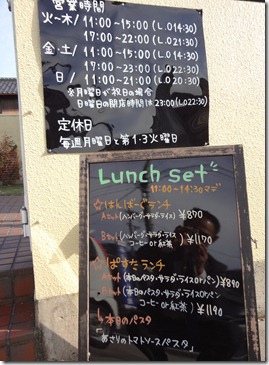 営業時間
火-木/ 11:00～15:00 (L.O14:30)
17:00～22:00 (L.O21:30)
金:土/ 11:00～15:00 (L.O14:30)
17:00～23:00 (L.O22:30)
日/ 11:00～21:00 (L.O20:30)
※月曜日が祝日の場合
日曜日の閉店時間は23:00(L.O22:30)
定休日
毎週月曜日と第1・3火曜日
Lunch set
11:00～14:30マデ
☆はんばーぐランチ
Aセット(ハンバーグ・サラダ・ライス) ¥890
Bセット(ハンバーグ・サラダ・ライス
コーヒーor紅茶) ¥1170
☆ぱすたランチ
Aセット(本日のパスタ・サラダ・ライスorパン) ¥890
(本日のパスタ・サラダ・ライスorパン
コーヒーor紅茶) ¥1190
本日のパスタ
「あさりのトマトソースパスタ」